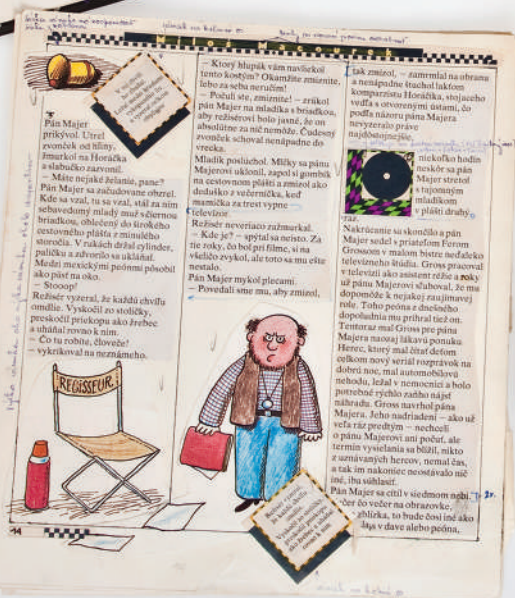 Miloš Macourek
Pán Majer
prikývol. Utrel
zvonček od hliny,
žmurkol na Horáčka
a slabučko zazvonil.
– Máte nejaké želanie, pane?
Pán Majer sa začudovane obzrel.
Kde sa vzal, tu sa vzal, stál za ním
sebavedomý mladý muž s čiernou
briadkou, oblečený do širokého
cestovného plášťa z minulého
storočia. V rukách držal cylinder,
paličku a zdvorilo sa ukláňal.
Medzi mexickými peónmi pôsobil
ako päsť na oko.
– Stooop!
Režisér vyzeral, že každú chvíľu
omdlie. Vyskočil zo stoličky,
preskočil priekopu ako žrebec
a uháňal rovno k nim.
– Čo tu robíte, človeče!
– vykrikoval na neznámeho.
REGISSEUR
14
– Ktorý hlupák vám navliekol
tento kostým? Okamžite zmiznite,
lebo za seba neručím!
– Počuli ste, zmiznite! – zrúkol
pán Majer na mladíka s briadkou,
aby režisérovi bolo jasné, že on
absolútne za nič nemôže. Čudesný
zvonček schoval nenápadne do
vrecka.
Mladík poslúchol. Mlčky sa pánu
Majerovi uklonil, zapol si gombík
na cestovnom plášti a zmizol ako
deduško z večerníčka, keď
mamička za trest vypne
televízor.
Režisér neveriaco zažmurkal.
– Kde je? – spýtal sa neisto. Za
tie roky, čo bol pri filme, si na
všeličo zvykol, ale toto sa mu ešte
nestalo.
Pán Majer mykol plecami.
– Povedali sme mu, aby zmizol,
Režisér vyzeral,
že každú chvíľu
omdlie.
Vyskočil zo stoličky,
preskočil priekopu
ako žrebec a uháňal
rovno k nim.
tak zmizol, – zamrmlal na obranu
a nenápadne štuchol lakťom
komparzistu Horáčka, stojaceho
vedľa s otvorenými ústami, čo
podľa názoru pána Majera
nevyzeralo práve
najdôstojnejšie.
niekoľko hodín
neskôr sa pán
Majer stretol
s tajomným
mladíkom
v plášti druhý
raz.
Nakrúcanie sa skončilo a pán
Majer sedel s priateľom Ferom
Grossom v malom bistre neďaleko
televízneho štúdia. Gross pracoval
v televízii ako asistent réžie a roky
už pánu Majerovi sľuboval, že mu
dopomôže k nejakej zaujímavej
role. Toho peóna z dnešného
dopoludnia mu prihral tiež on.
Tentoraz mal Gross pre pána
Majera naozaj lákavú ponuku.
Herec, ktorý mal čítať deťom
celkom nový seriál rozprávok na
dobrú noc, mal automobilovú
nehodu, ležal v nemocnici a bolo
potrebné rýchlo zaňho nájsť
náhradu. Gross navrhol pána
Majera. Jeho nadriadení – ako už
veľa ráz predtým – nechceli
o pánu Majerovi ani počuť, ale
termín vysielania sa blížil, nikto
z uznávaných hercov, nemal čas,
a tak im nakoniec neostávalo nič
iné, iba súhlasiť.
Pán Majer sa cítil v siedmom nebi.
čer čo večer na obrazovke,
zblízka, to bude čosi iné ako
v dave alebo peóna,